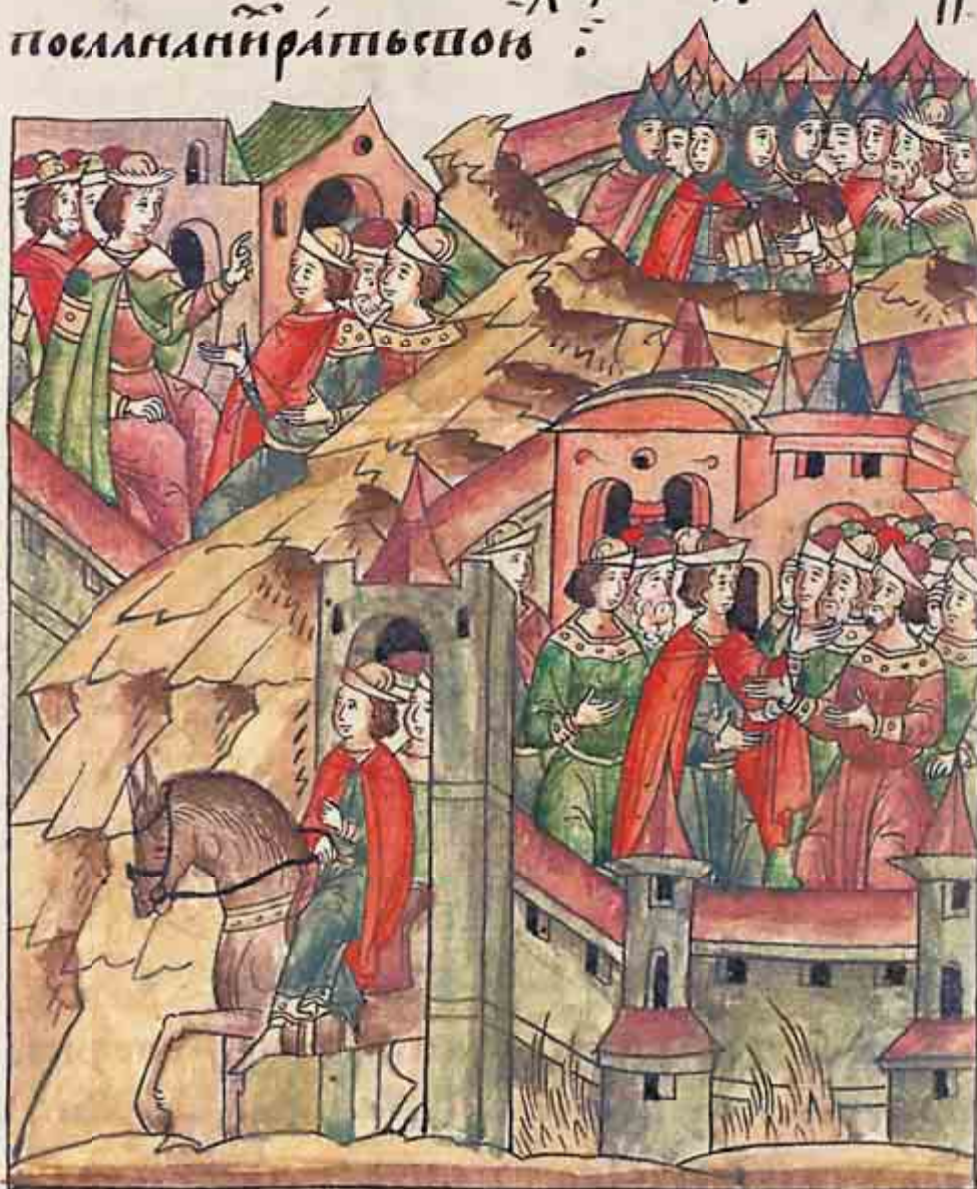 посла на ниⷯ ра́ть свою